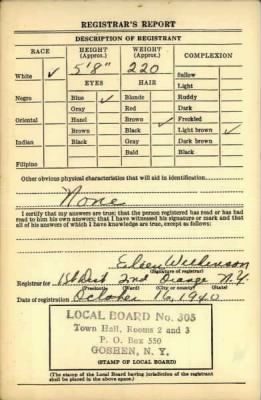 REGISTRAR'S REPORT
DESCRIPTION OF REGISTRANT
RACE HEIGHT (Approx.) WEIGHT (Approx.) COMPLEXION
White ✓ 5'8" 220 Sallow
EYES HAIR Light
Negro Blue ✓ Blonde Ruddy
Gray Red Dark
Oriental Hazel Brown ✓ Freckled
Brown Black Light brown ✓
Indian Black Gray Dark brown
Bald Black
Filipino
Other obvious physical characteristics that will aid in identification
None
I certify that my answers are true; that the person registered has read or has had
read to him his own answers; that I have witnessed his signature or mark and that
all of his answers of which I have knowledge are true, except as follows:
Wilkinson
(Signature of registrar)
Registrar for 1st Dist 2nd Orange N.Y.
(Precinct) (Ward) (City or county) (State)
Date of registration October 16, 1940
LOCAL BOARD No. 303
Town Hall, Rooms 2 and 3
P. O. BOX 550
GOSHEN, N. Y.
(STAMP OF LOCAL BOARD)
(The stamp of the Local Board having jurisdiction of the registrant
shall be placed in the above space)